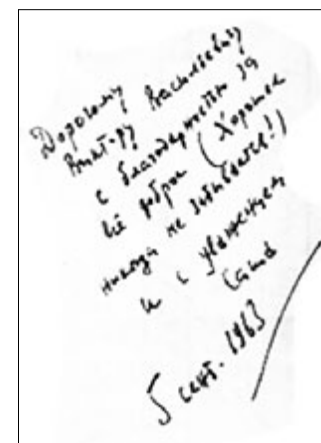 Дорогому Васильевичу
с благодарностью за
всё доброе (Хорошее
никогда не забывается!)
и с уважением
Саша
5 сент. 1963